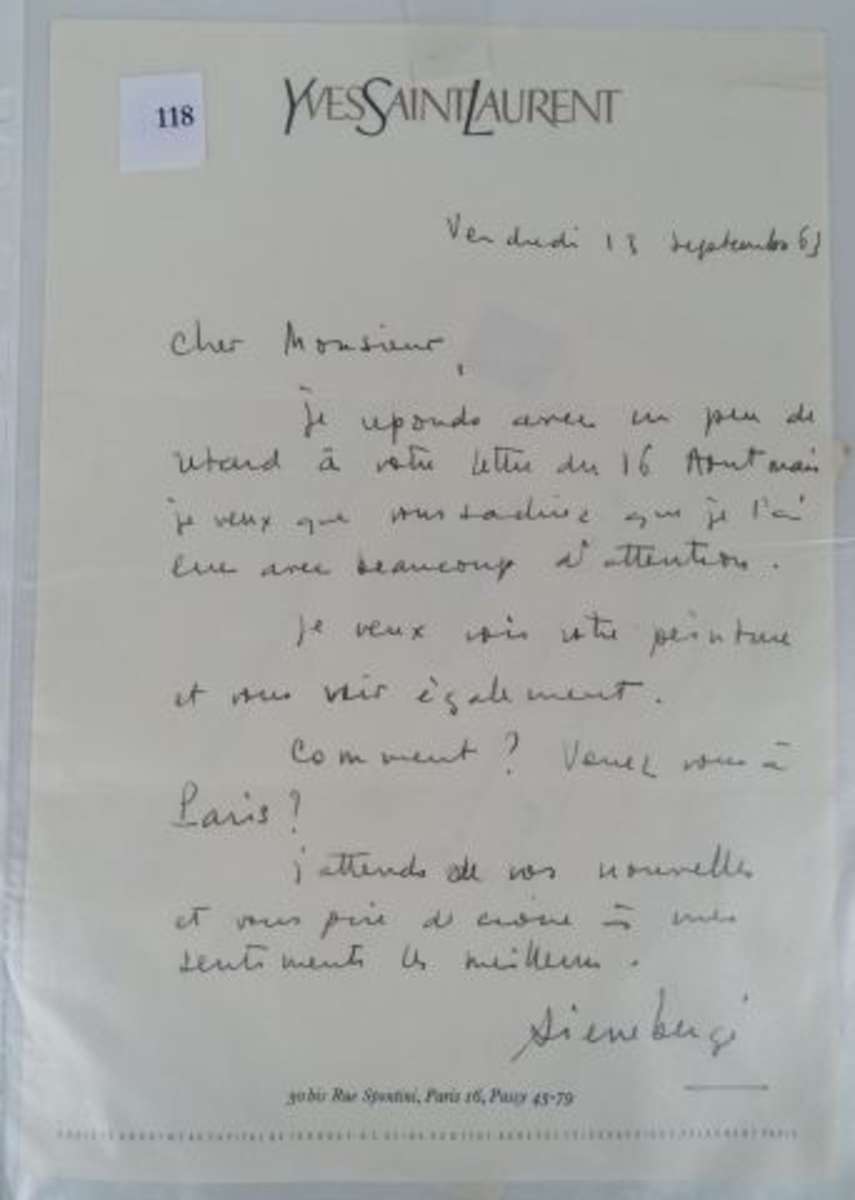 118
YVES SAINT LAURENT
Vendredi 13 septembre 63
Cher Monsieur,
Je réponds avec un peu de
retard à votre lettre du 16 Aout mais
je veux que vous sachiez que je l'ai
lue avec beaucoup d'attention.
Je veux voir votre peinture
et vous voir également.
Comment ? Venez vous à
Paris ?
J'attends de vos nouvelles
et vous prie de croire à mes
sentiments les meilleurs.
Pierre Bergé
30 bis Rue Spontini, Paris 16, Passy 45-79